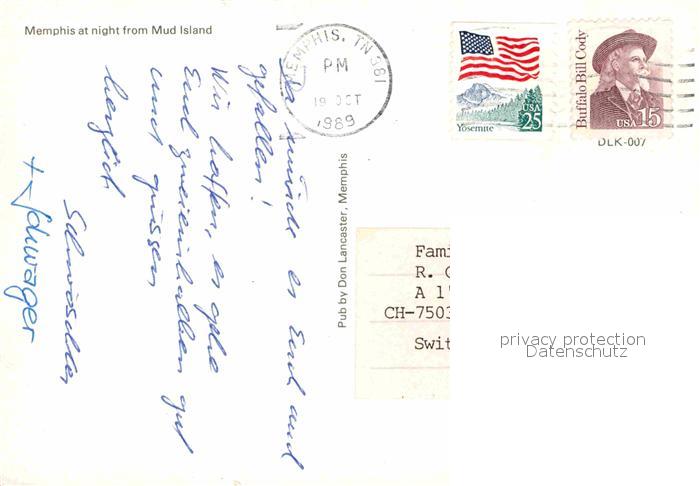 Memphis at night from Mud Island
MEMPHIS, TN 381
PM
19 OCT
1989
USA
25
Yosemite
Buffalo Bill Cody
USA 15
DLK-007
Da würde es Euch auch
gefallen!
Wir hoffen, es gehe
Euch zweieinhalben gut
und grüssen
herzlich
Schwöschter
+ Schwager
Pub by Don Lancaster, Memphis
Fami
R. C
A l'
CH-7503
Swit
privacy protection
Datenschutz